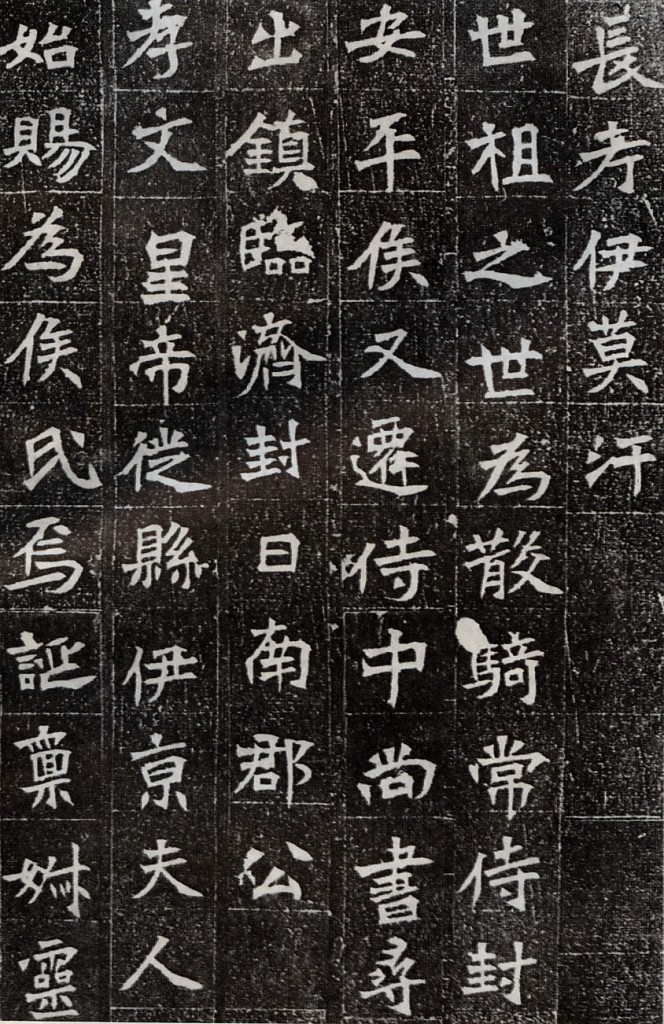 長考伊莫汗
世祖之世為散騎常侍封
安平侯又遷侍中尚書尋
出鎮臨濟封日南郡公
孝文皇帝徙縣伊京夫人
始賜為侯氏焉誕稟婌靈